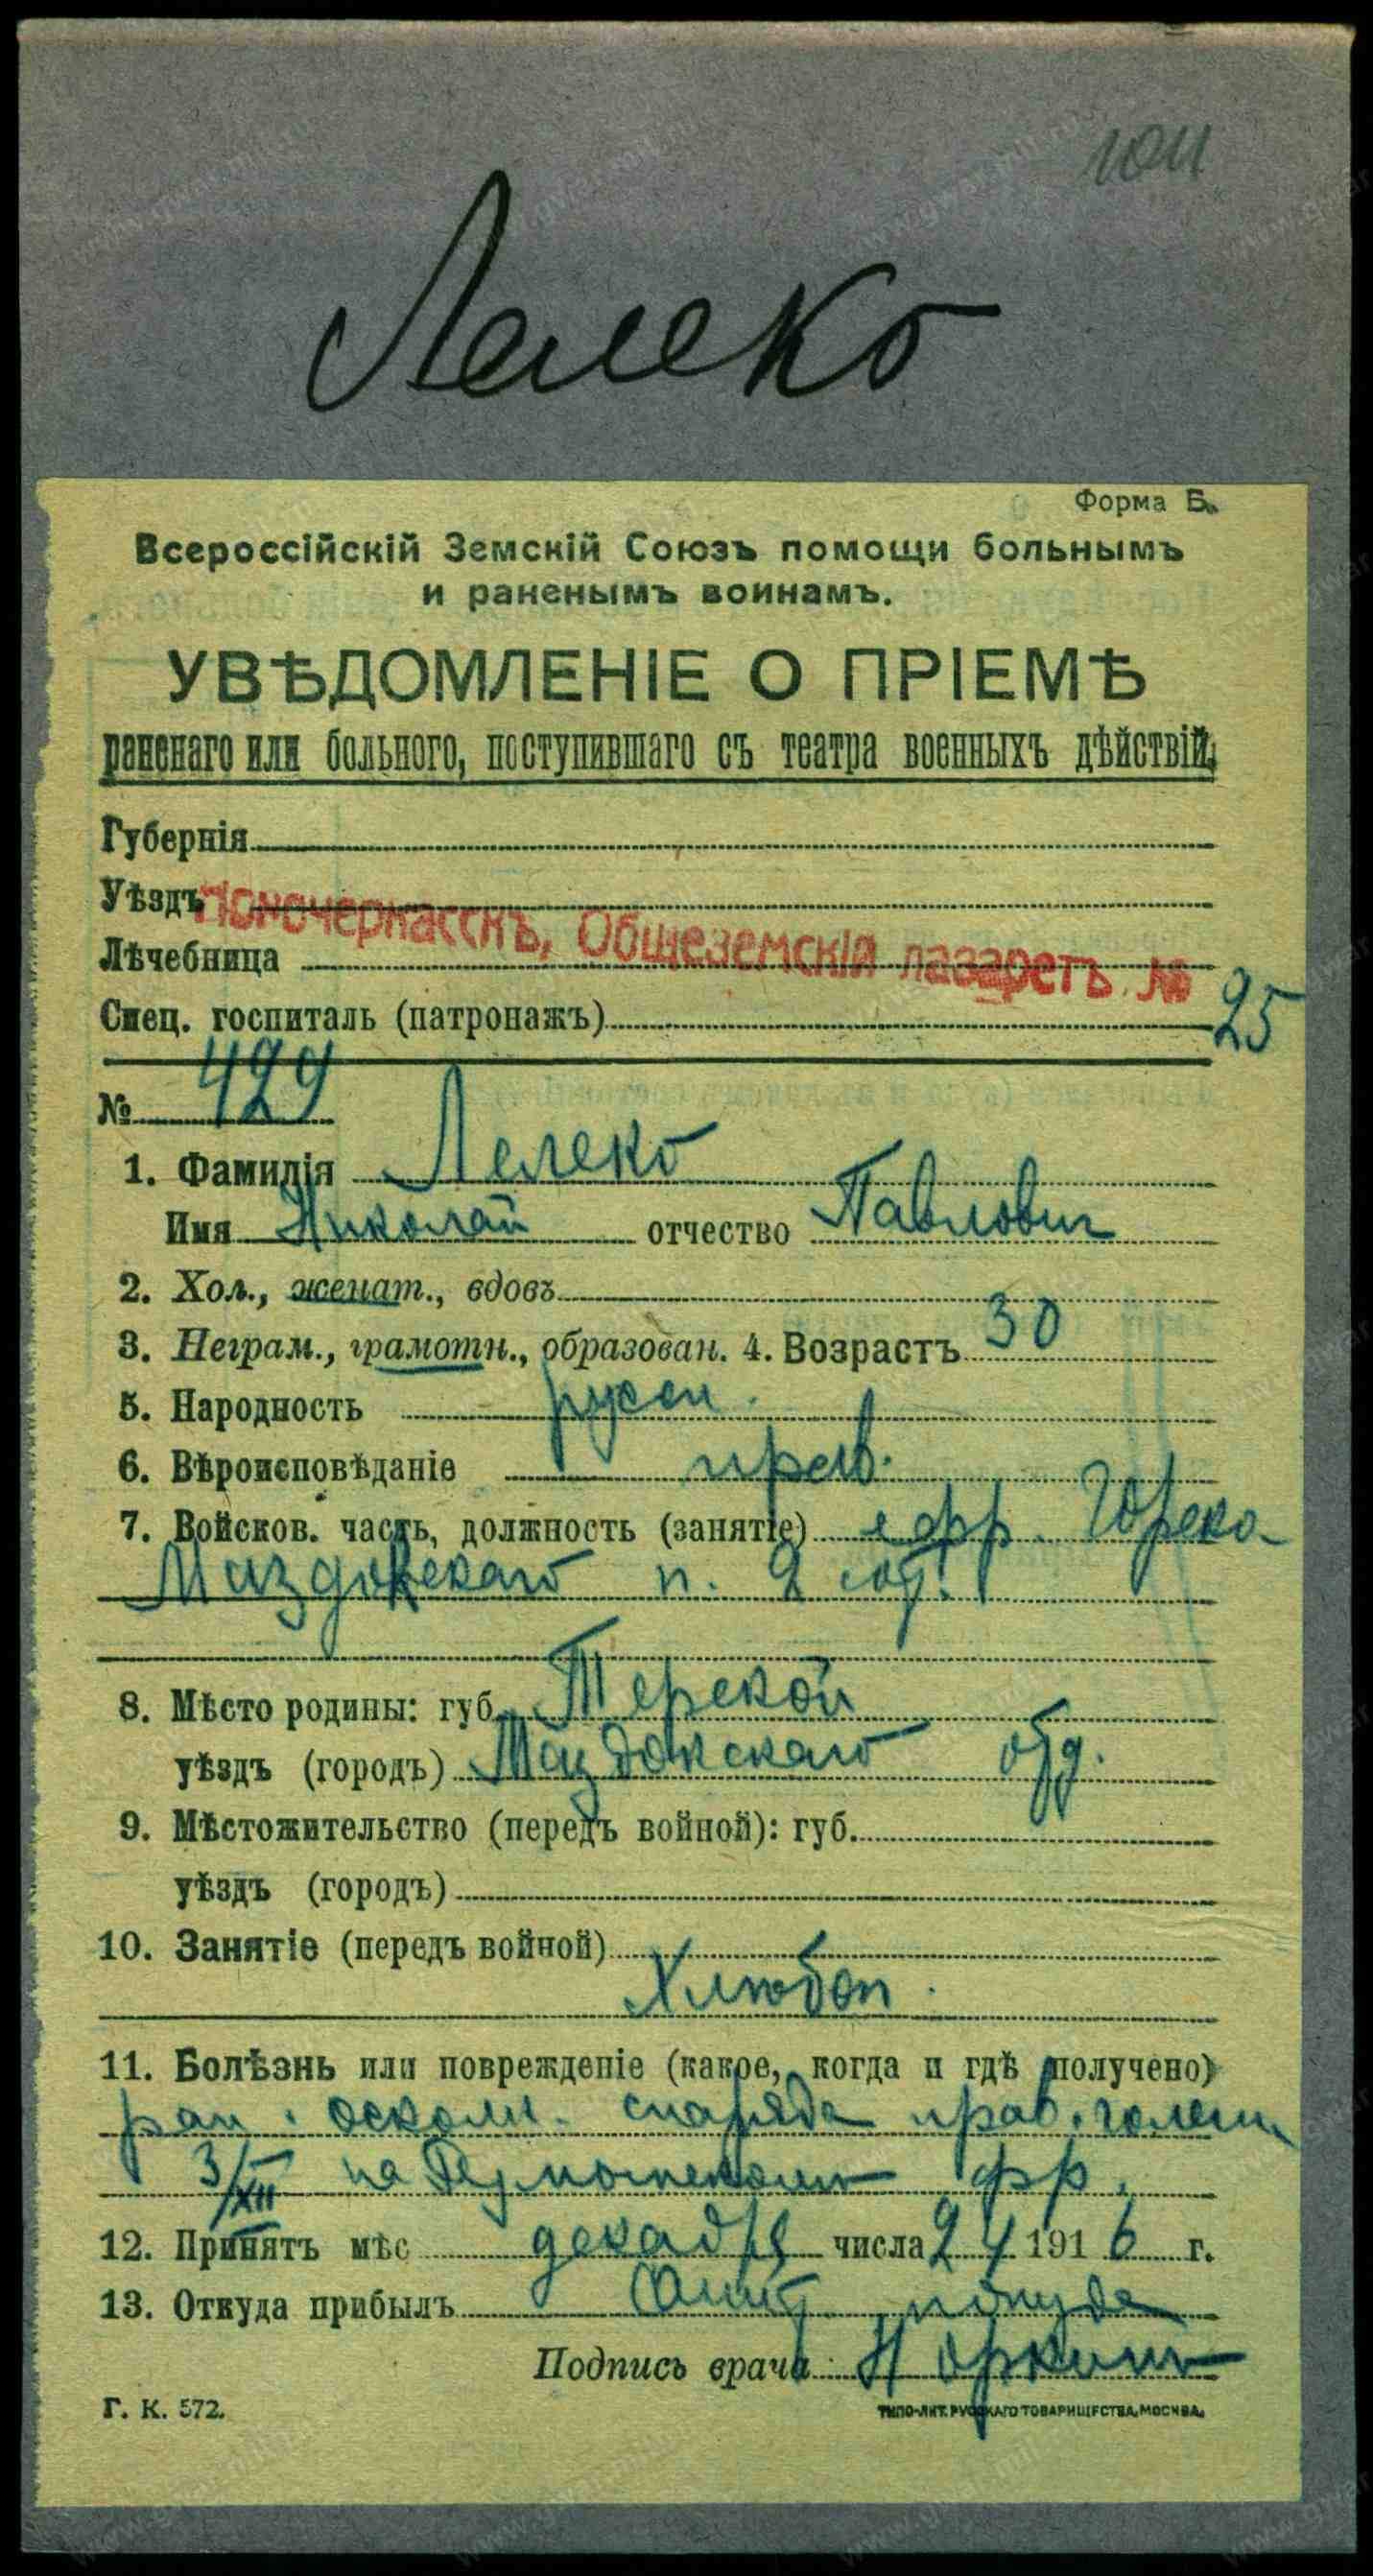 1011
Лелеко
Форма Б.
Всероссійскій Земскій Союзъ помощи больнымъ
и раненымъ воинамъ.
УВѢДОМЛЕНІЕ О ПРІЕМѢ
раненаго или больного, поступившаго съ театра военныхъ дѣйствій,
Губернія
Уѣздъ
Новочеркасскъ, Общеземскій лазаретъ №
Лѣчебница
Спец. госпиталь (патронажъ) 25
№ 429
1. Фамилія Лелеко
Имя Николай отчество Павлович
2. Хол., женат., вдовъ
3. Неграм., грамотн., образован. 4. Возрастъ 30
5. Народность русск.
6. Вѣроисповѣданіе прав.
7. Войсков. часть, должность (занятіе) ефр. Горско-
Моздокскаго п. 2 сот.
8. Мѣсто родины: губ. Терской
уѣздъ (городъ) Моздокскаго отд.
9. Мѣстожительство (передъ войной): губ.
уѣздъ (городъ)
10. Занятіе (передъ войной)
Хлѣбоп.
11. Болѣзнь или поврежденіе (какое, когда и гдѣ получено)
ран. осколк. снаряда прав. голени
3/XII на фр.
12. Принятъ мѣс декабря числа 24 1916 г.
13. Откуда прибылъ Санит поѣзда
Подпись врача
Г. К. 572.
ТИПО-ЛИТ. РУССКАГО ТОВАРИЩЕСТВА, МОСКВА.